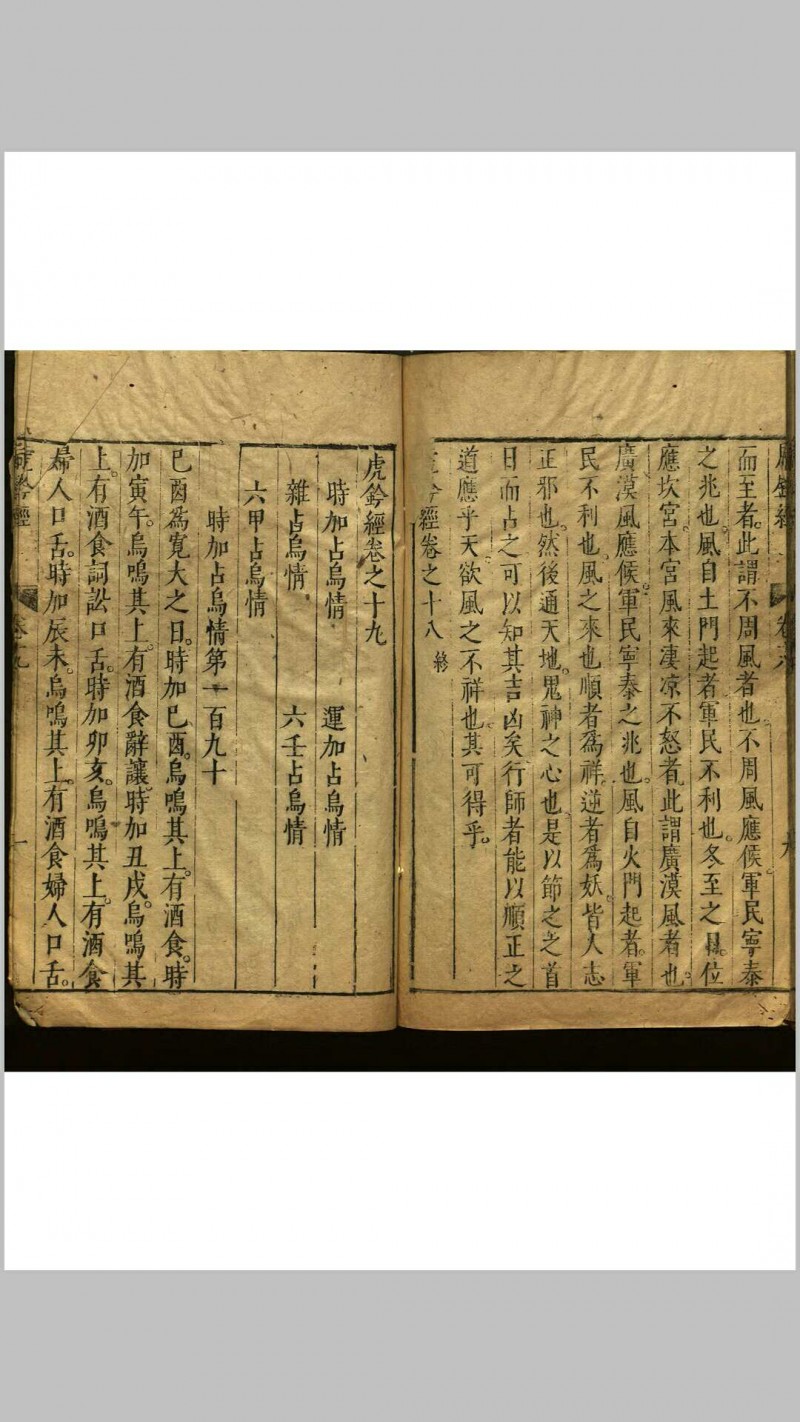 而至者。此謂不周風者也。不周風應候。軍民寧泰
之兆也。風自土門起者。軍民不利也。冬至之日。位
應坎宮。本宮風來淒凉不怒者。此謂廣漠風者也。
廣漠風應候。軍民寧泰之兆也。風自火門起者。軍
民不利也。風之來也。順者為祥。逆者為妖。皆人志
正邪也。然後通天地。鬼神之心也。是以節之之首
日而占之。可以知其吉凶矣。行師者能以順正之
道應乎天。欲風之不祥也。其可得乎。
鈐經卷之十八 終
虎鈐經卷之十九
時加占烏情 運加占烏情
雜占烏情 六壬占烏情
六甲占烏情
時加占烏情第一百九十
巳酉為寬大之日。時加巳酉。烏鳴其上。有酒食。時
加寅午。烏鳴其上。有酒食辭讓。時加丑戌。烏鳴其
上。有酒食詞訟口舌。時加卯亥。烏鳴其上。有酒食
婦人口舌。時加辰未。烏鳴其上。有酒食婦人口舌。
鈐經 卷十九 一